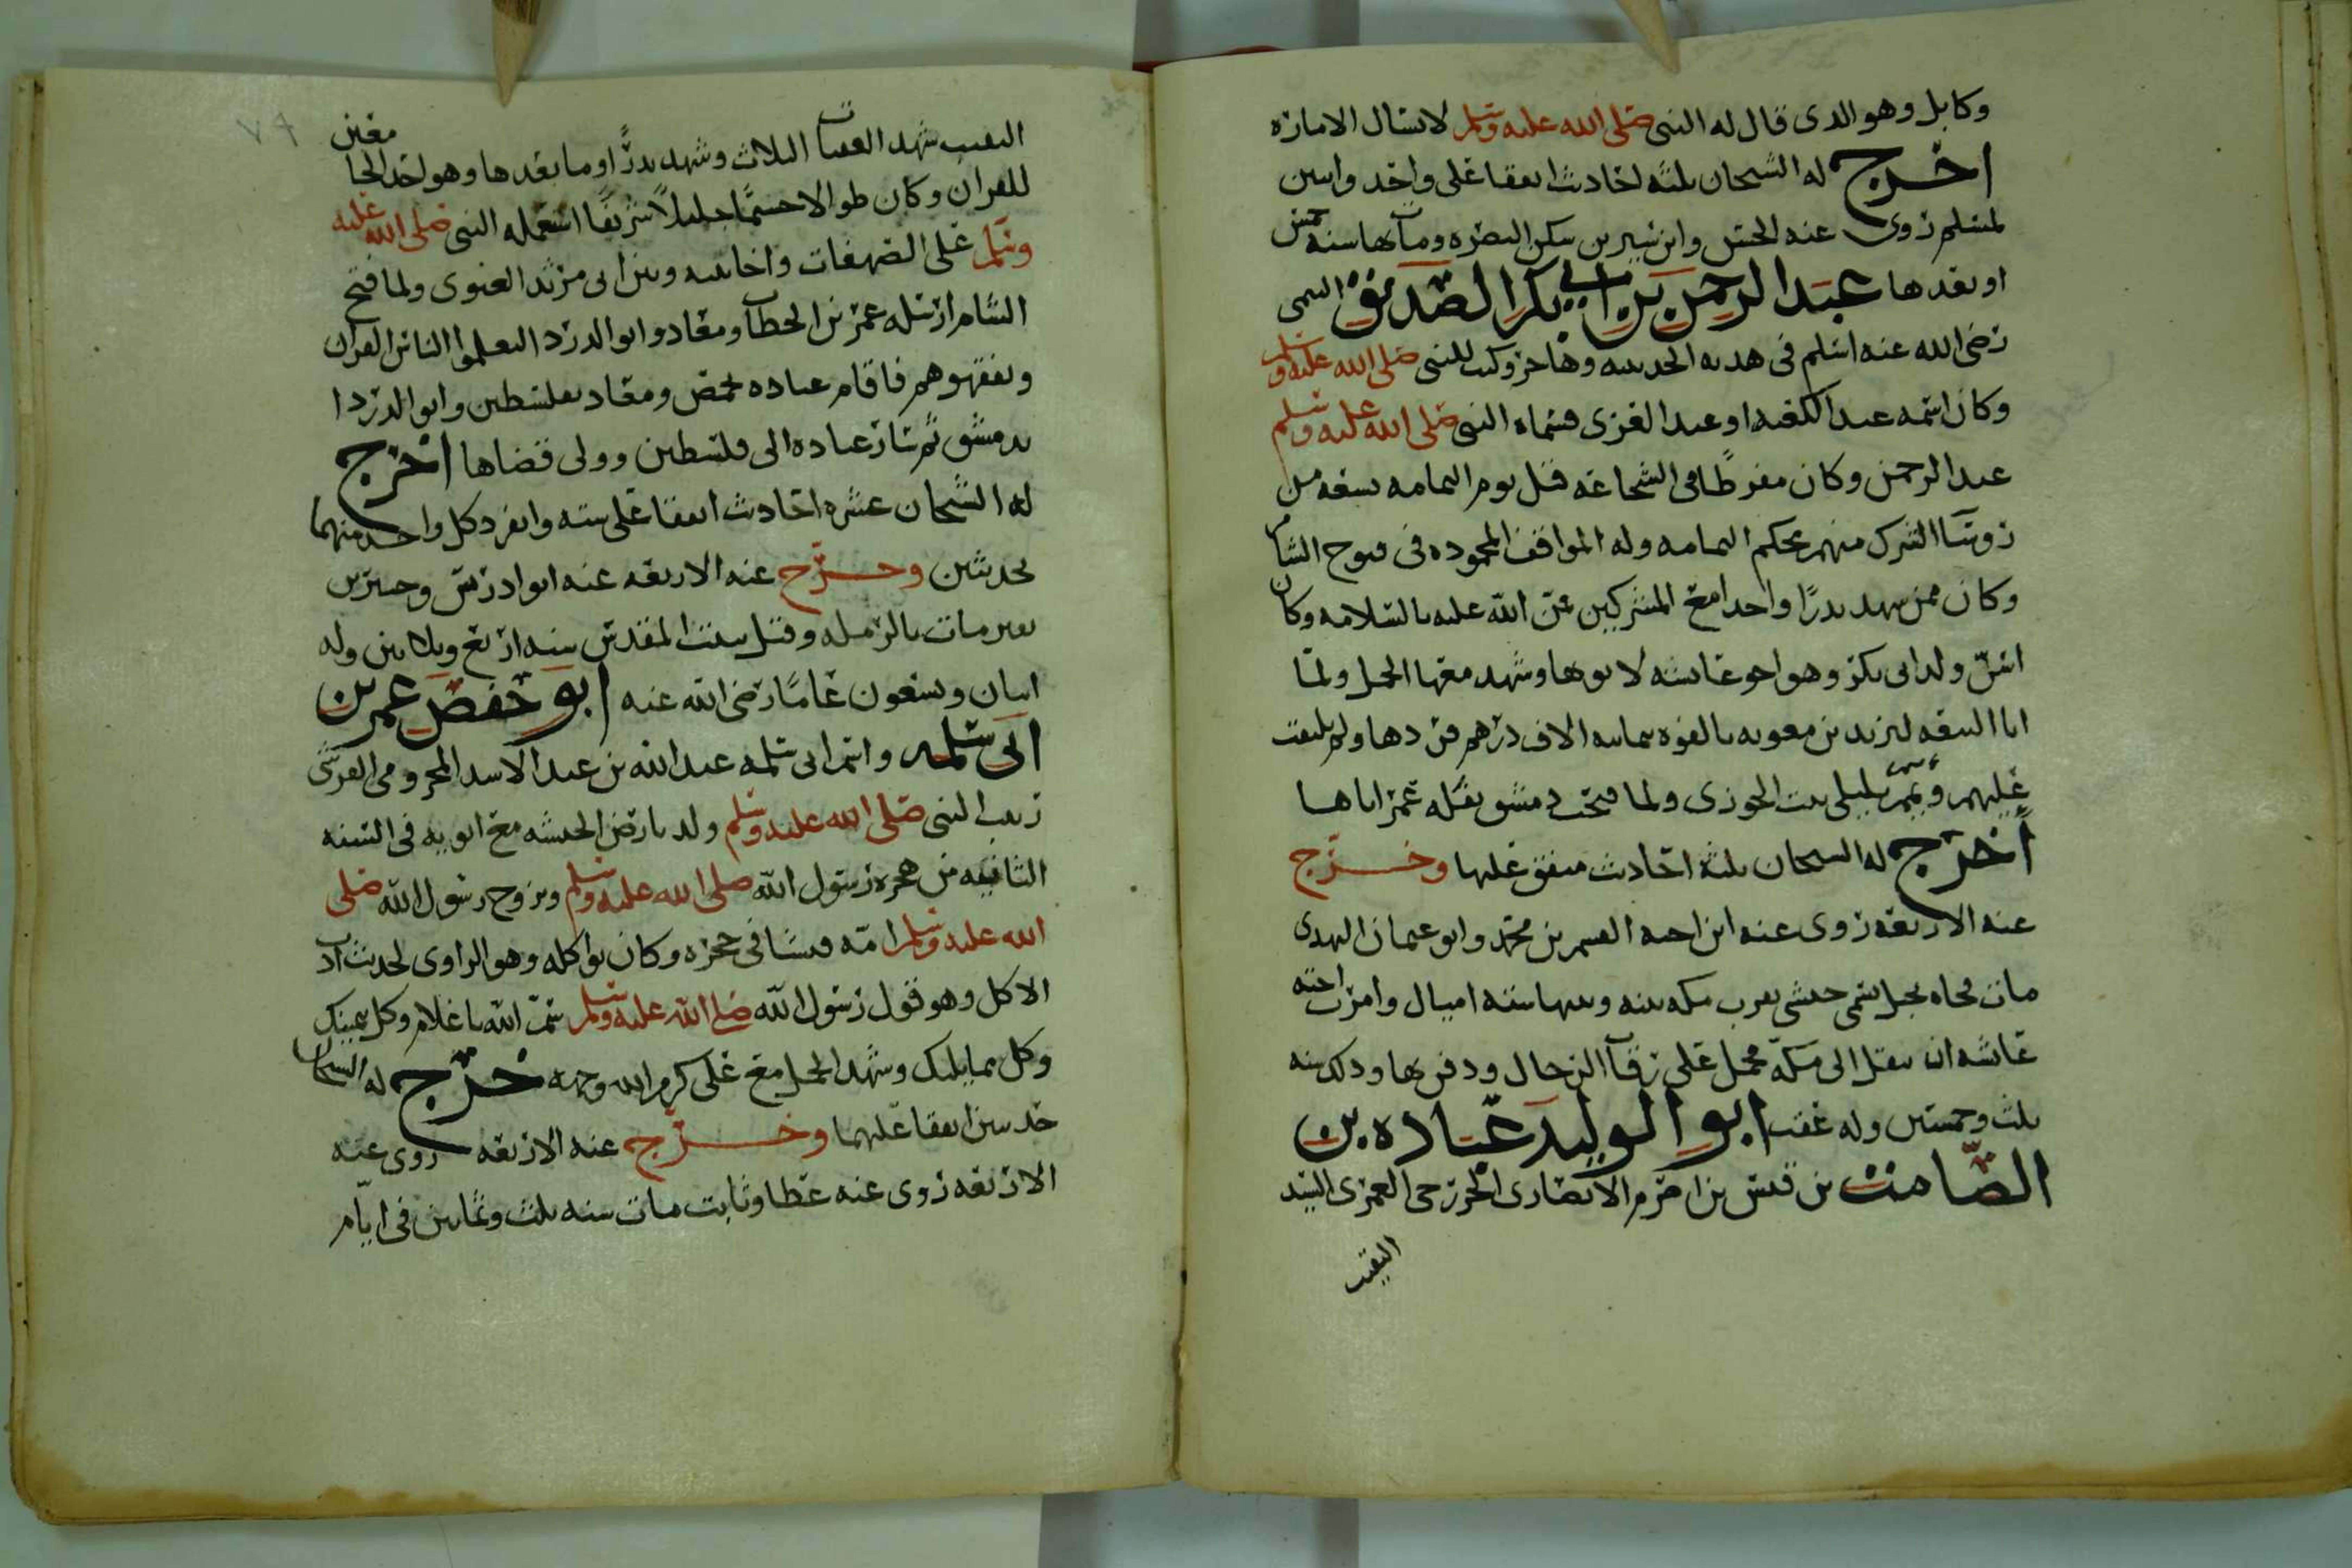 وكابل وهو الدى قال له النبى صلى الله عليه وسلم لا تسال الامارة
اخرج له الشيحان ثلثه احاديث اتفقا على واحد واثنين
لمسلم روى عنه الحسن وابن سيرين سكن البصره ومات بها سنه خمس
او بعدها عبد الرحمن بن ابي بكر الصديق التيمى
رضى الله عنه اسلم فى هدنه الحديبيه وهاجر وكتب للنبى صلى الله عليه وسلم
وكان اسمه عبد الكعبه او عبد العزى فسماه النبى صلى الله عليه وسلم
عبد الرحمن وكان مفرطا فى الشجاعه قتل يوم اليمامه سبعه من
روسا الشرك منهم محكم اليمامه وله المواقف المحموده فى فتوح الشام
وكان ممن شهد بدرًا واحدا مع المشركين منّ الله عليه بالسلامه وكان
اسنّ ولد ابى بكر وهو اخو عايشه لابويها وشهد معها الجمل ولما
ابا البيعه ليزيد بن معويه بالقوه بمايه الاف درهم فردها ولم يلتفت
عليهم وتيم بليلى بنت الجوزى ولما فتحت دمشق نفله عمر اياها
اخرج له الشيحان ثلثه احاديث متفق عليها وخرّج
عنه الاربعه روى عنه ابن اخيه القسم بن محمد وابو عثمان النهدى
مات فجاه بجبل يسمى حبشى بقرب مكه بينه وبينها سته اميال وامرت اخته
عايشه ان ينقل الى مكه فحمل على رقاب الرجال ودفن بها ودلك سنه
ثلث وخمسين وله عقب ابو الوليد عباده بن
الصّامت بن قيس بن اصرم الانصارى الخزرجى العمرى السيد
النقيب
النقيب شهد العقبات الثلاث وشهد بدرًا وما بعدها وهو احد الجامعين
للقران وكان طوالا جسيمًا جليلًا شريفًا استعمله النبى صلى الله عليه
وسلم على الصدقات واخا بينه وبين ابى مرثد الغنوى ولما فتح
الشام ارسله عمر بن الخطاب ومعاد وابو الدردا ليعلموا الناس القران
ويفقهوهم فاقام عباده بحمص ومعاد بفلسطين وابو الدردا
بدمشق ثم سار عباده الى فلسطين وولى قضاها اخرج
له الشيحان عشره احاديث اتفقا على سته وانفرد كل واحد منهما
بحديثين وخرّج عنه الاربعه عنه ابو ادريس وجبير بن
نفير مات بالرمله وقيل ببيت المقدس سنه اربع وثلاثين وله
اثنان وسبعون عامًا رضى الله عنه ابو حفص عمر بن
ابى سلمه واسم ابى سلمه عبد الله بن عبد الاسد المخزومى القرشى
ربيب النبى صلى الله عليه وسلم ولد بارض الحبشه مع ابويه فى السنه
الثانيه من هجره رسول الله صلى الله عليه وسلم وتزوج رسول الله صلى
الله عليه وسلم امّه فنشا فى حجره وكان يواكله وهو الراوى لحديث اداب
الاكل وهو قول رسول الله صلى الله عليه وسلم سمّ الله يا غلام وكل بيمينك
وكل مما يليك وشهد الجمل مع على كرم الله وجهه خرّج له الشيحان
حديثين اتفقا عليهما وخرّج عنه الاربعه روى عنه
الاربعه روى عنه عطا وثابت مات سنه ثلث وثمانين فى ايّام